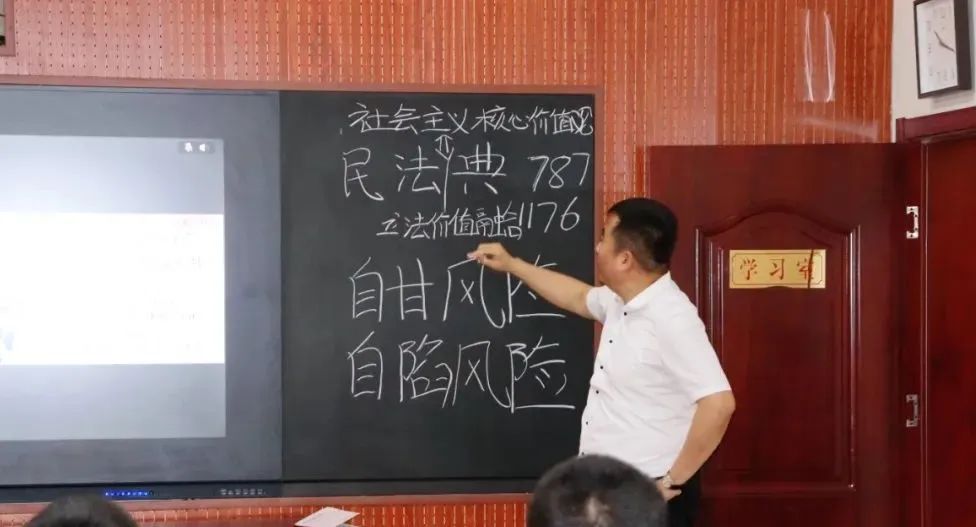 社会主义核心价值观
民法典 787
立法价值融合 1176
自甘风险
自陷风险
学习室